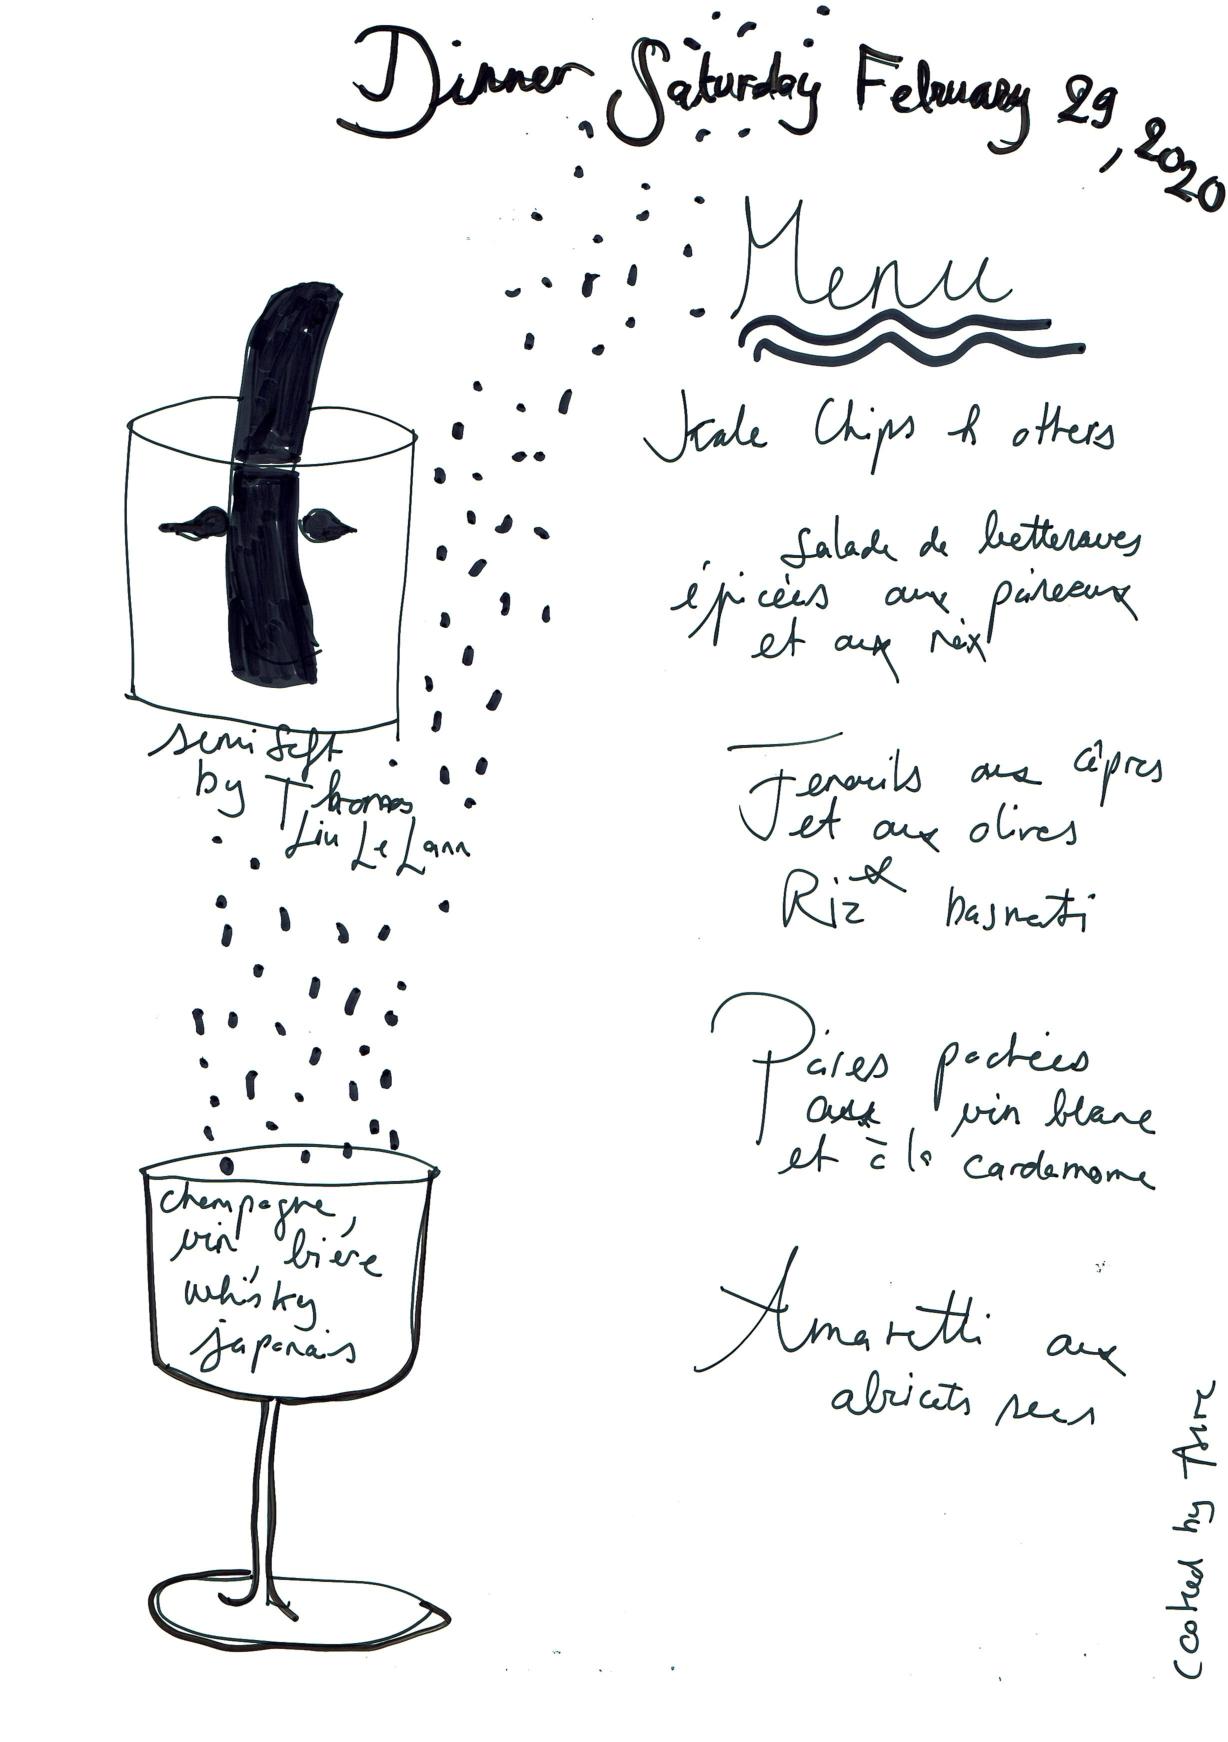 Dinner Saturday February 29, 2020
Menu
Kale Chips & others
Salade de betteraves
épicées aux poireaux
et aux noix
Fenouils aux câpres
et aux olives
Riz basmati
Poires pochées
au vin blanc
et à la cardamome
Amaretti aux
abricots secs
semi soft
by Thomas
Liu Le Lann
champagne,
vin, bière
whisky
japonais
cooked by